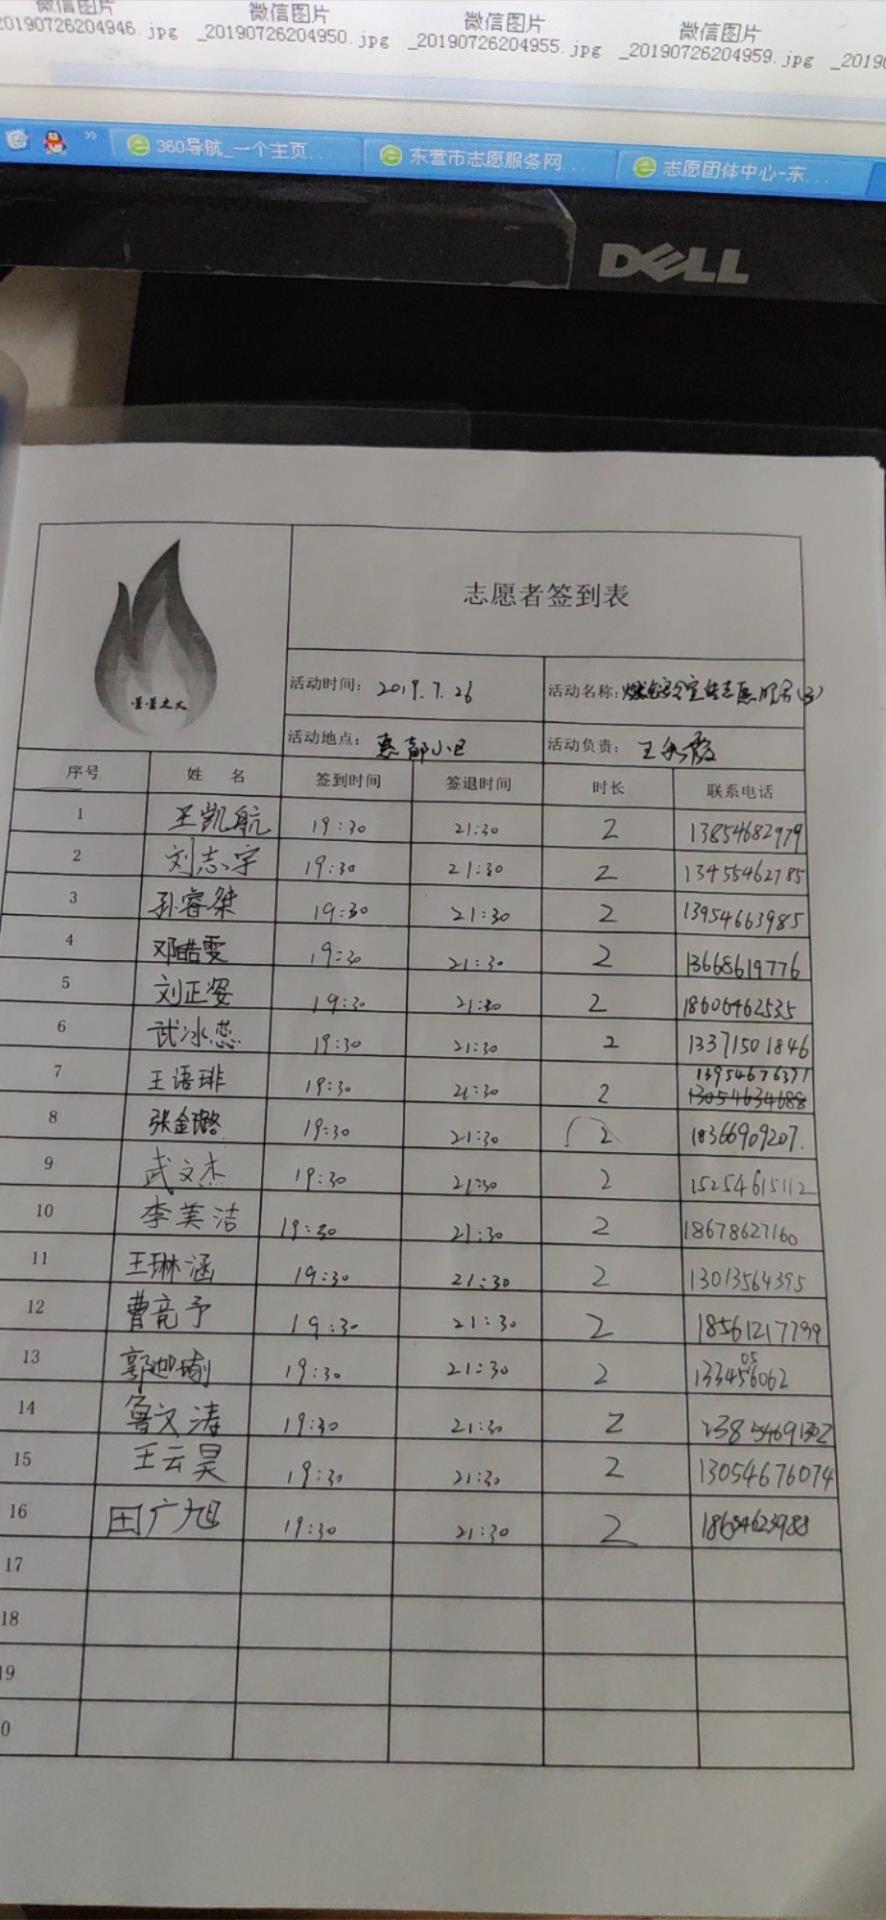 微信图片 微信图片 微信图片 微信图片
20190726204946.jpg _20190726204950.jpg _20190726204955.jpg _20190726204959.jpg _2019
» 360导航_一个主页... 东营市志愿服务网... 志愿团体中心-东...
DELL
志愿者签到表
星星之火
活动时间： 2019.7.26 活动名称：
活动地点： 惠都小区 活动负责：
序号 姓 名 签到时间 签退时间 时长 联系电话
1 王凯航 19:30 21:30 2 13854682979
2 刘志宇 19:30 21:30 2 13455462785
3 孙睿桀 19:30 21:30 2 13954663985
4 邓皓雯 19:30 21:30 2 13668619776
5 刘正姿 19:30 21:30 2 18606462535
6 武冰蕊 19:30 21:30 2 13371501846
13954676371
7 王语琲 19:30 21:30 2 13054634688
8 张金璐 19:30 21:30 2 18366909207.
9 武文杰 19:30 21:30 2 15254615112
10 李美洁 19:30 21:30 2 18678627160
11 王琳涵 19:30 21:30 2 13013564395
12 曹竞予 19:30 21:30 2 18561217799
05
13 19:30 21:30 2 133456062
14 鲁文涛 19:30 21:30 2
15 王云昊 19:30 21:30 2 13054676074
16 田广旭 19:30 21:30 2 18654623988
17
18
19
0